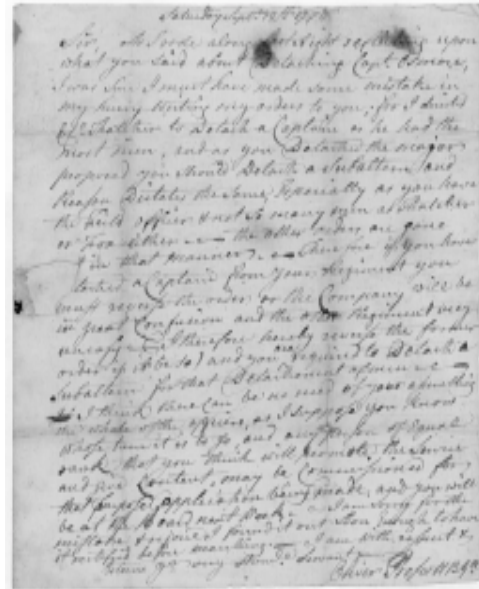 Saturday Sept. 12th 1778
Sir, As I rode along last Night reflecting upon
what you Said about Detaching Capt.
I was Sure I must have made Some mistake in
my hurry Writing my orders to you, for I directed
Thatcher to Detach a Captain as he had the
most men, and as you Detached the major
proposed you Should Detach a Subaltern, and
Reason Dictates the Same, Especially as you have
the field officer & not So many men as Thatcher
or — the other orders are gone
in that manner — if you have
a Captain from your Regiment you
must reverse the order or the Company will be
in great Confusion and the other Regiment very
uneasy — I therefore hereby reverse the former
order (if it be so) and you are required to Detach a
Subaltern for that Detachment of men —
I think there can be no need of your
the whole of the officers, as I Suppose you Know
whose turn it is to go, and any person of Equal
rank that you think will promote the Service
and give Content, may be Commissioned for
that purpose, application being made, and you will
be at the Board next Week — I am Sorry for the
mistake & rejoice I found it out Soon enough to have
it rectified before marching — I am with respect &
your very Humble Servant
Oliver Prescott B.G.